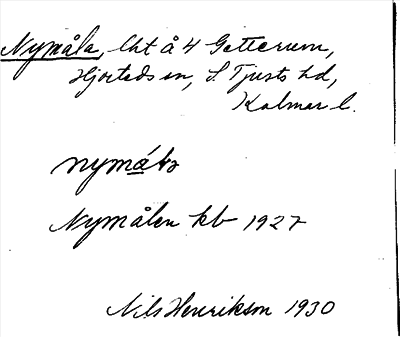 Nymåla, lht å 4 Getterum,
Hjorteds sn, S. Tjusts hd,
Kalmar l.
nymǻla
Nymålen kb 1927
Nils Henrikson 1930